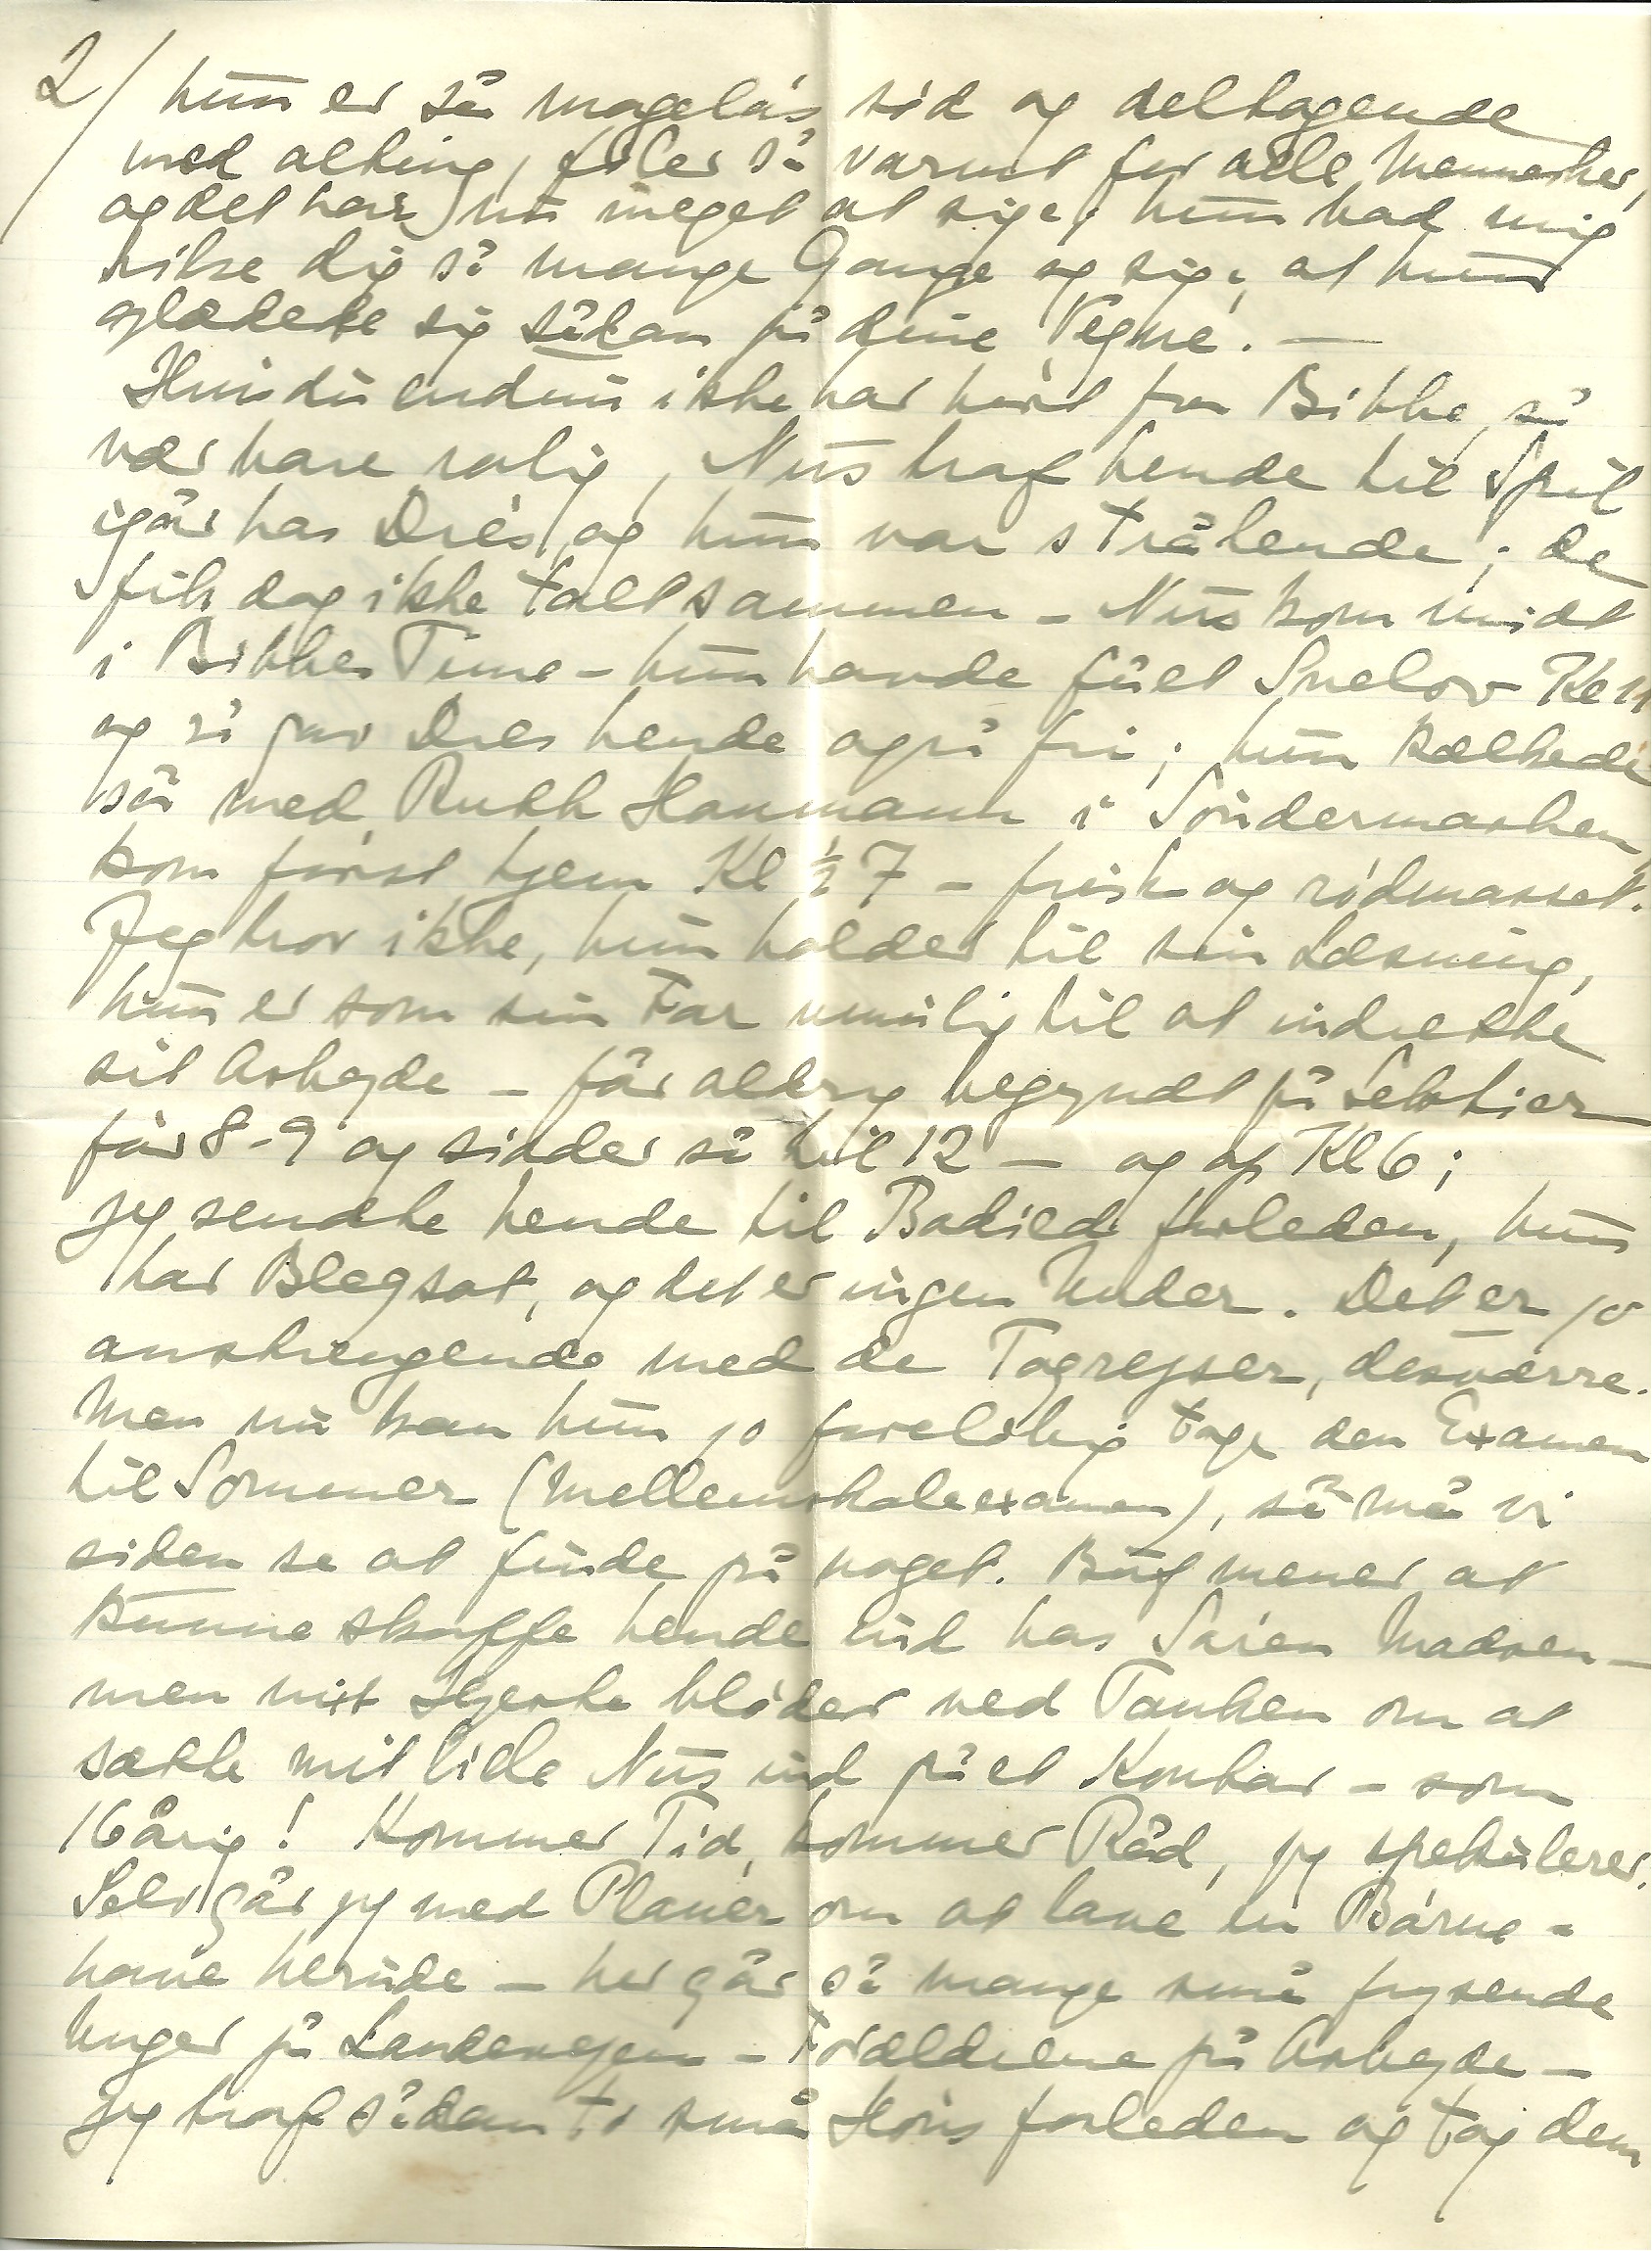 2/ hun er så mageløs sød og deltagende
med alting, føler så varmt for alle Mennesker,
og det har nu meget at sige; hun bad mig
hilse dig så mange Gange og sige, at hun
glædede sig sådan på dine Vegne. —
Hvis du endnu ikke har hørt fra Bibbe, så
vær bare rolig, Nus traf hende til Spil
igår hos Dres, og hun var strålende; de
fik dog ikke talt sammen - Nus kom midt
i Bibbes Time - hun havde fået Snelov Kl 11
og så gav Dres hende også fri; hun
så med Ruth Hanmann i Söndermarken,
kom først hjem Kl ½ 7 - frisk og rødmosset.
Jeg tror ikke, hun holder til sin Læsning,
hun er som sin Far umulig til at indrette
sit Arbejde - får aldrig begyndt på Lektier
før 8-9 og sidder så til 12 — og op Kl 6;
jeg sendte hende til Bodild forleden, hun
har Blegsot, og det er ingen Under. Det er jo
anstrengende med de Togrejser, desværre.
Men nu kan hun jo foreløbig tage den Examen
til Sommer (Mellemskoleexamen), så må vi
siden se at finde på noget. mener at
kunne skaffe hende ind hos Søren Madsen —
men mit Hjerte bløder ved Tanken om at
sætte mit lille Nus ind på et Kontor - som
16årig! Kommer Tid, kommer Råd, jeg spekulerer.
Selv går jeg med Planer om at lave en Børne-
have herude - her går så mange små frysende
Unger på Landevejen - Forældrene på Arbejde —
jeg traf sådan to små forleden og tog dem